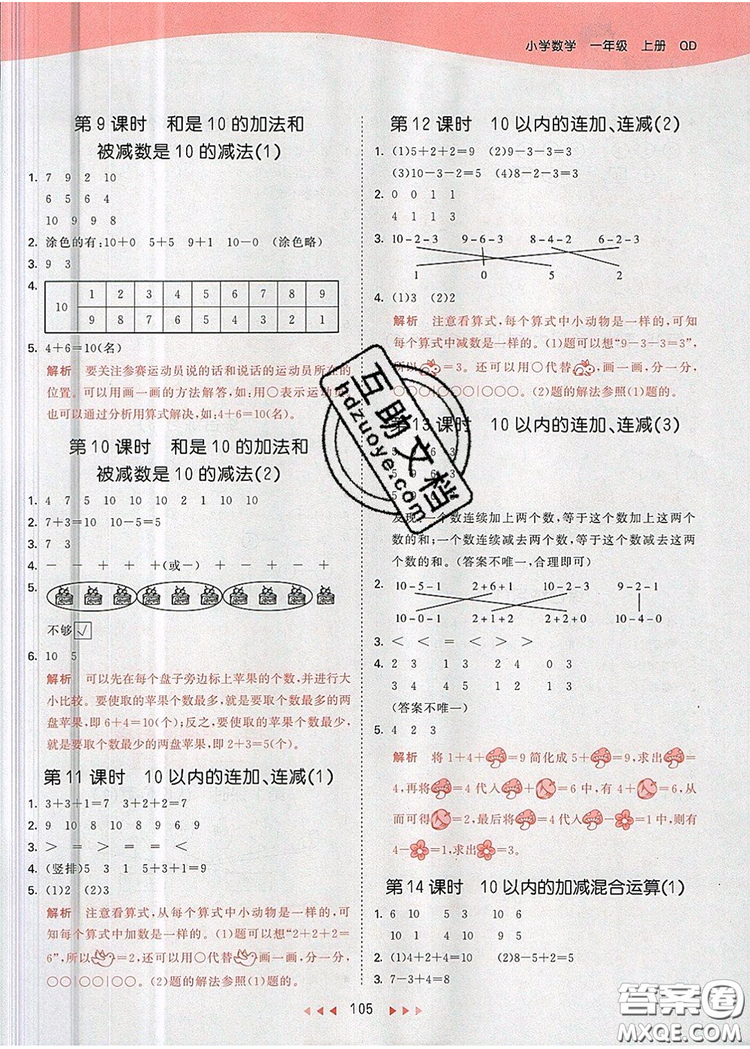 小学数学 一年级 上册 QD
第9课时 和是10的加法和
被减数是10的减法(1)
1. 7 9 2 10
6 5 6 4
10 9 9 8
2. 涂色的有:10+0 5+5 9+1 10-0 (涂色略)
3. 9 3
4. 10 1 2 3 4 5 6 7 8 9
9 8 7 6 5 4 3 2 1
5. 4+6=10(名)
解析 要关注参赛运动员说的话和说话的运动员所在的
位置。可以用画一画的方法解答,如:用○表示运动
也可以通过分析用算式解决,如:4+6=10(名)。
第10课时 和是10的加法和
被减数是10的减法(2)
1. 4 7 5 10 10 10 2 1 10 10
2. 7+3=10 10-5=5
3. 7 3
4. - - + +(或-) + - + - +
5.
不够 √
6. 10 5
解析 可以先在每个盘子旁边标上苹果的个数,并进行大
小比较。要使取的苹果个数最多,就是要取个数最多的两
盘苹果,即6+4=10(个);反之,要使取的苹果个数最
少,就要取个数最少的两盘苹果,即2+3=5(个)。
第11课时 10以内的连加、连减(1)
1. 3+3+1=7 3+2+2=7
2. 9 10 8 10 8 9 6 9
3. > = > = = >
4. (竖排)5 3 1 5+3+1=9
5. (1)2 (2)3
解析 注意看算式,从每个算式中小动物是一样的,可
知每个算式中加数是一样的。(1)题可以想“2+2+2=
6”,所以=2。还可以用○代替画一画,分一分,
○○|○○|○○。(2)题的解法参照(1)题的。
第12课时 10以内的连加、连减(2)
1. (1)5+2+2=9 (2)9-3-3=3
(3)10-3-2=5 (4)8-3-3=2
2. 0 0 1 1
4 1 1 3
3. 10-2-3 9-6-3 8-4-2 6-2-3
1 0 5 2
4. (1)3 (2)2
解析 注意看算式,每个算式中小动物是一样的,可知
每个算式中减数是一样的。(1)题可以想“9-3-3=3”,
所以=3。还可以用○代替,画一画,分一分,
○○○|○○○|○○○。(2)题的解法参照(1)题的。
13课时 10以内的连加、连减(3)
发现:一个数连续加上两个数,等于这个数加上这两个
数的和;一个数连续减去两个数,等于这个数减去这两
个数的和。(答案不唯一,合理即可)
2. 10-5-1 2+6+1 10-6-2 9-2-1
10-8 10-6 2+7 10-4-0
3. < < = < > >
4. 2 3 1 4 2 4 2 3
3 4 4 5 1 2 1 3
(答案不唯一)
5. 4 2 3
解析 将1+4+=9简化成5+=9,求出=
4,再将=4代入+=6中,有4+=6,从
而可得=2,最后将=4代入-=1中,则有
4-=1,求出=3。
第14课时 10以内的加减混合运算(1)
1. 6 10 5 3 10 6
10 1 4 10 9 5
2. (1)10-5+4=9 (2)8-5+2=5
3. 7-3+4=8
105
互助文档
hdzuoye.com
答案圈
MXQE.COM